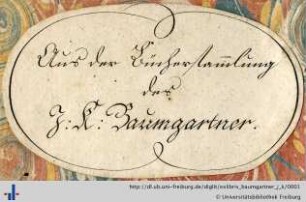 Aus der Büchersammlung
des
J: K: Baumgartner.
http://dl.ub.uni-freiburg.de/diglit/exlibris_baumgartner_j_k/0001
© Universitätsbibliothek Freiburg